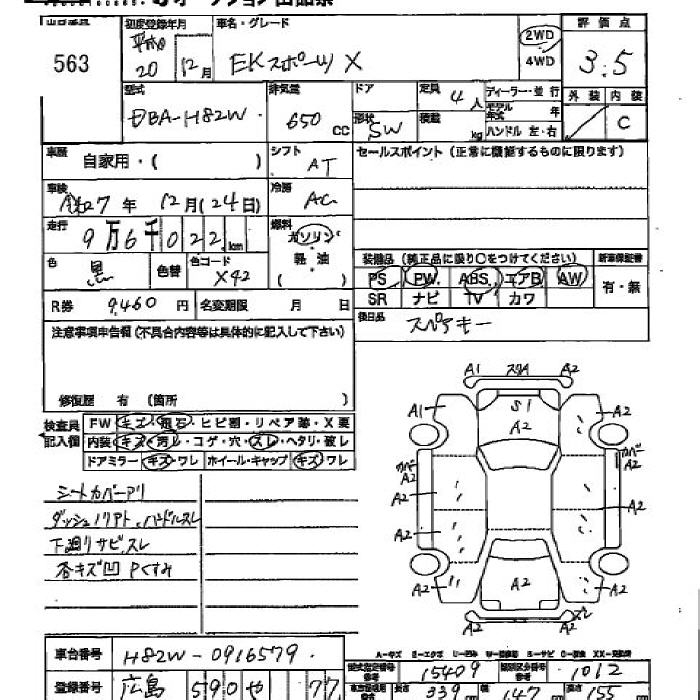 563
初度登録年月 車名・グレード 評価点
平成 20年 12月 EKスポーツ X 2WD 4WD 3.5
型式 排気量 ドア 定員 4人 ディーラー・並行 外装 内装
DBA-H82W 650cc 形状 SW 積載 kg モデル年式 年 ハンドル 左・右 C
車歴 自家用・( ) シフト AT セールスポイント(正常に機能するものに限ります)
車検 27年 12月(24日) 冷房 AC
走行 9万6千022km 燃料 ガソリン
軽油
( )
色 黒 色替 色コード X42 装備品(純正品に限り○をつけてください) 新車保証書
PS PW ABS エアB AW 有・無
SR ナビ TV カワ
R券 9,460円 名変期限 月 日 後日品 スペアキー
注意事項申告欄(不具合内容等は具体的に記入して下さい)
修復歴 有 (箇所 )
検査員記入欄 FW キズ・飛石・ヒビ割・リペア跡・X要
内装 キズ・汚レ・コゲ・穴・スレ・ヘタリ・破レ
ドアミラー キズ・ワレ ホイール・キャップ キズ ワレ
シートカバーアリ
ダッシュノリアト、ハンドルスレ
下廻りサビスレ
各キズ凹 Pくすみ
A1 スリA A2
A1 S1 A2
A2
カバーA2 カバーA2
A2 A2
A2 A2
A2 A2 A2
車台番号 H82W-0916579 型式指定番号 15409 類別区分番号 1012
登録番号 広島 590 や 77 339 147 155